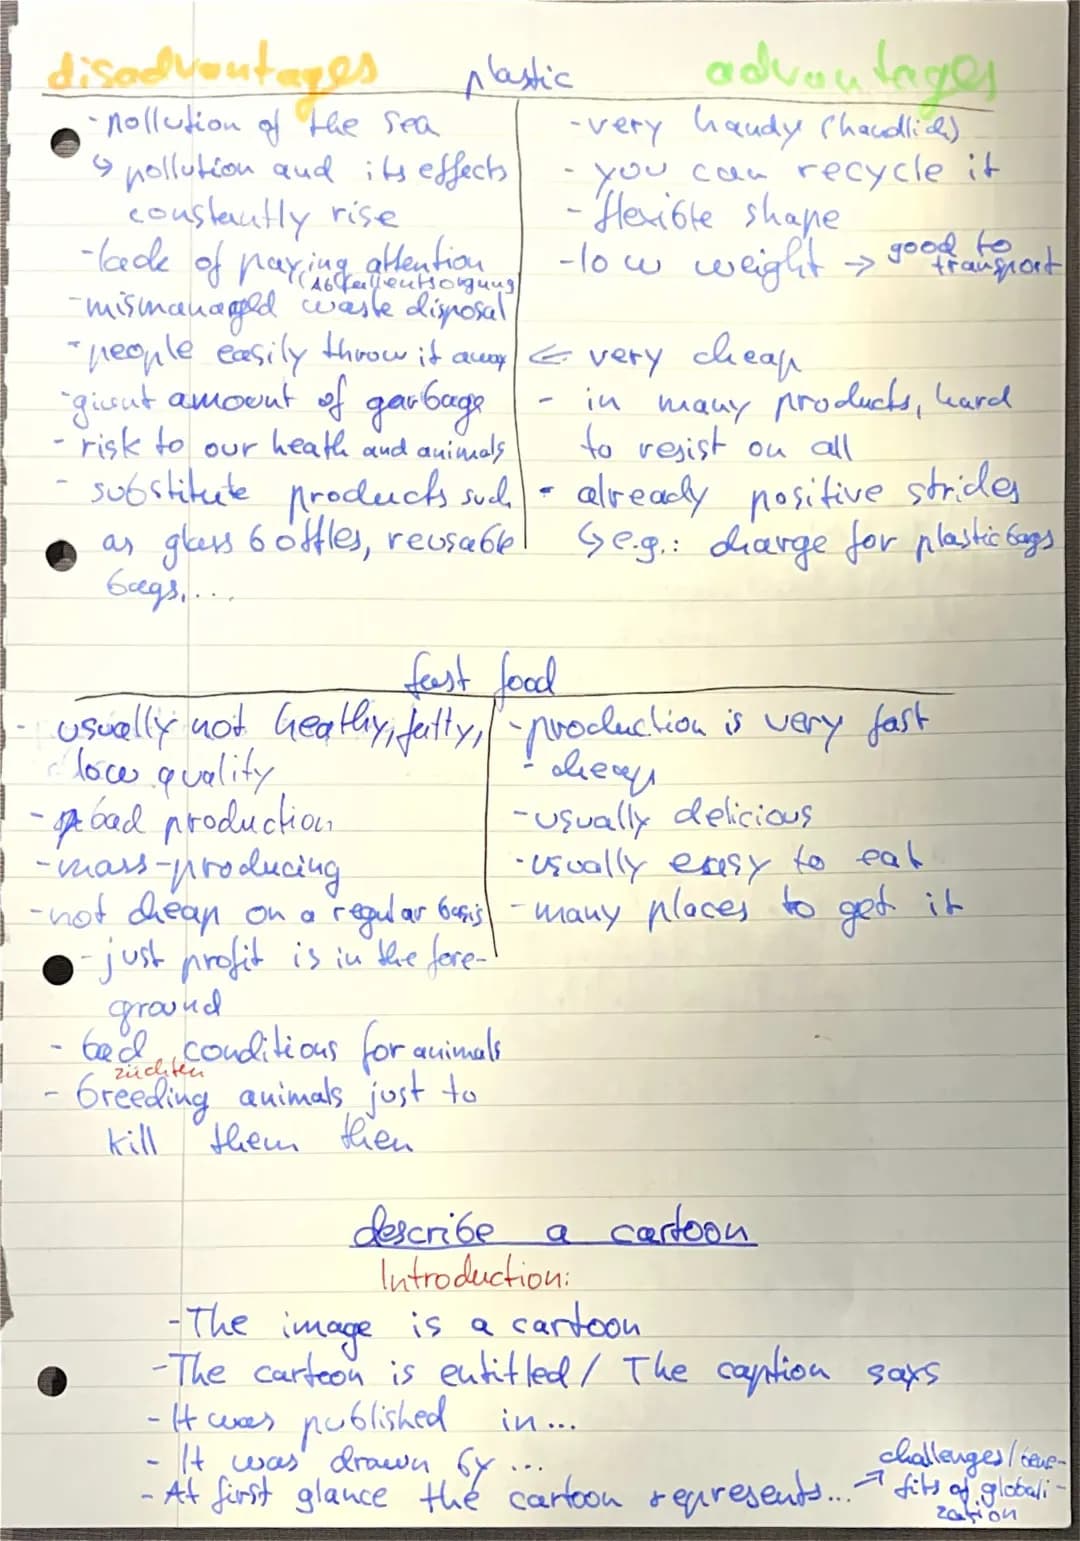 disadvantages plastic advantages
- pollution of the sea
↳ pollution and its effects
constantly rise
- lack of paying attention
(Abfallentsorgung)
- mismanaged waste disposal
- people easily throw it away
- giant amount of garbage
- risk to our heath and animals
- substitute products such
as glass bottles, reusable
bags,...
- very handy (handlich)
- you can recycle it
- flexible shape
- low weight → good to
transport
← very cheap
- in many products, hard
to resist on all
- already positive strides
↳ e.g.: charge for plastic bags
fast food
- usually not heathy, fatty,
low quality
- bad production
- mass-producing
- not cheap on a regular basis
- just profit is in the fore-
ground
- bad conditions for animals
züchten
- breeding animals just to
kill them then
- production is very fast
- cheap
- usually delicious
- usually easy to eat
- many places to get it
describe a cartoon
Introduction:
- The image is a cartoon
- The cartoon is entitled / The caption says
- It was published in...
- It was drawn by ...
- At first glance the cartoon represents... → challenges/bene-
fits of globali-
zation